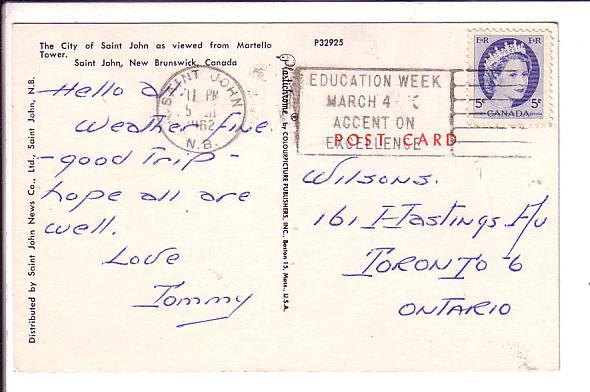 The City of Saint John as viewed from Martello
Tower.
Saint John, New Brunswick, Canada
P32925
Distributed by Saint John News Co., Ltd., Saint John, N.B.
Plastichrome® by COLOURPICTURE PUBLISHERS, INC., Boston 15, Mass., U.S.A.
Hello all
Weather fine
- good Trip -
hope all are
well.
Love
Tommy
SAINT JOHN
11 PM
5
1962
N.B.
EDUCATION WEEK
MARCH 4
ACCENT ON
EXCELLENCE
E II R E II R
5c 5c
CANADA
POST CARD
Wilsons.
161 Hastings Av
TORONTO 6
ONTARIO